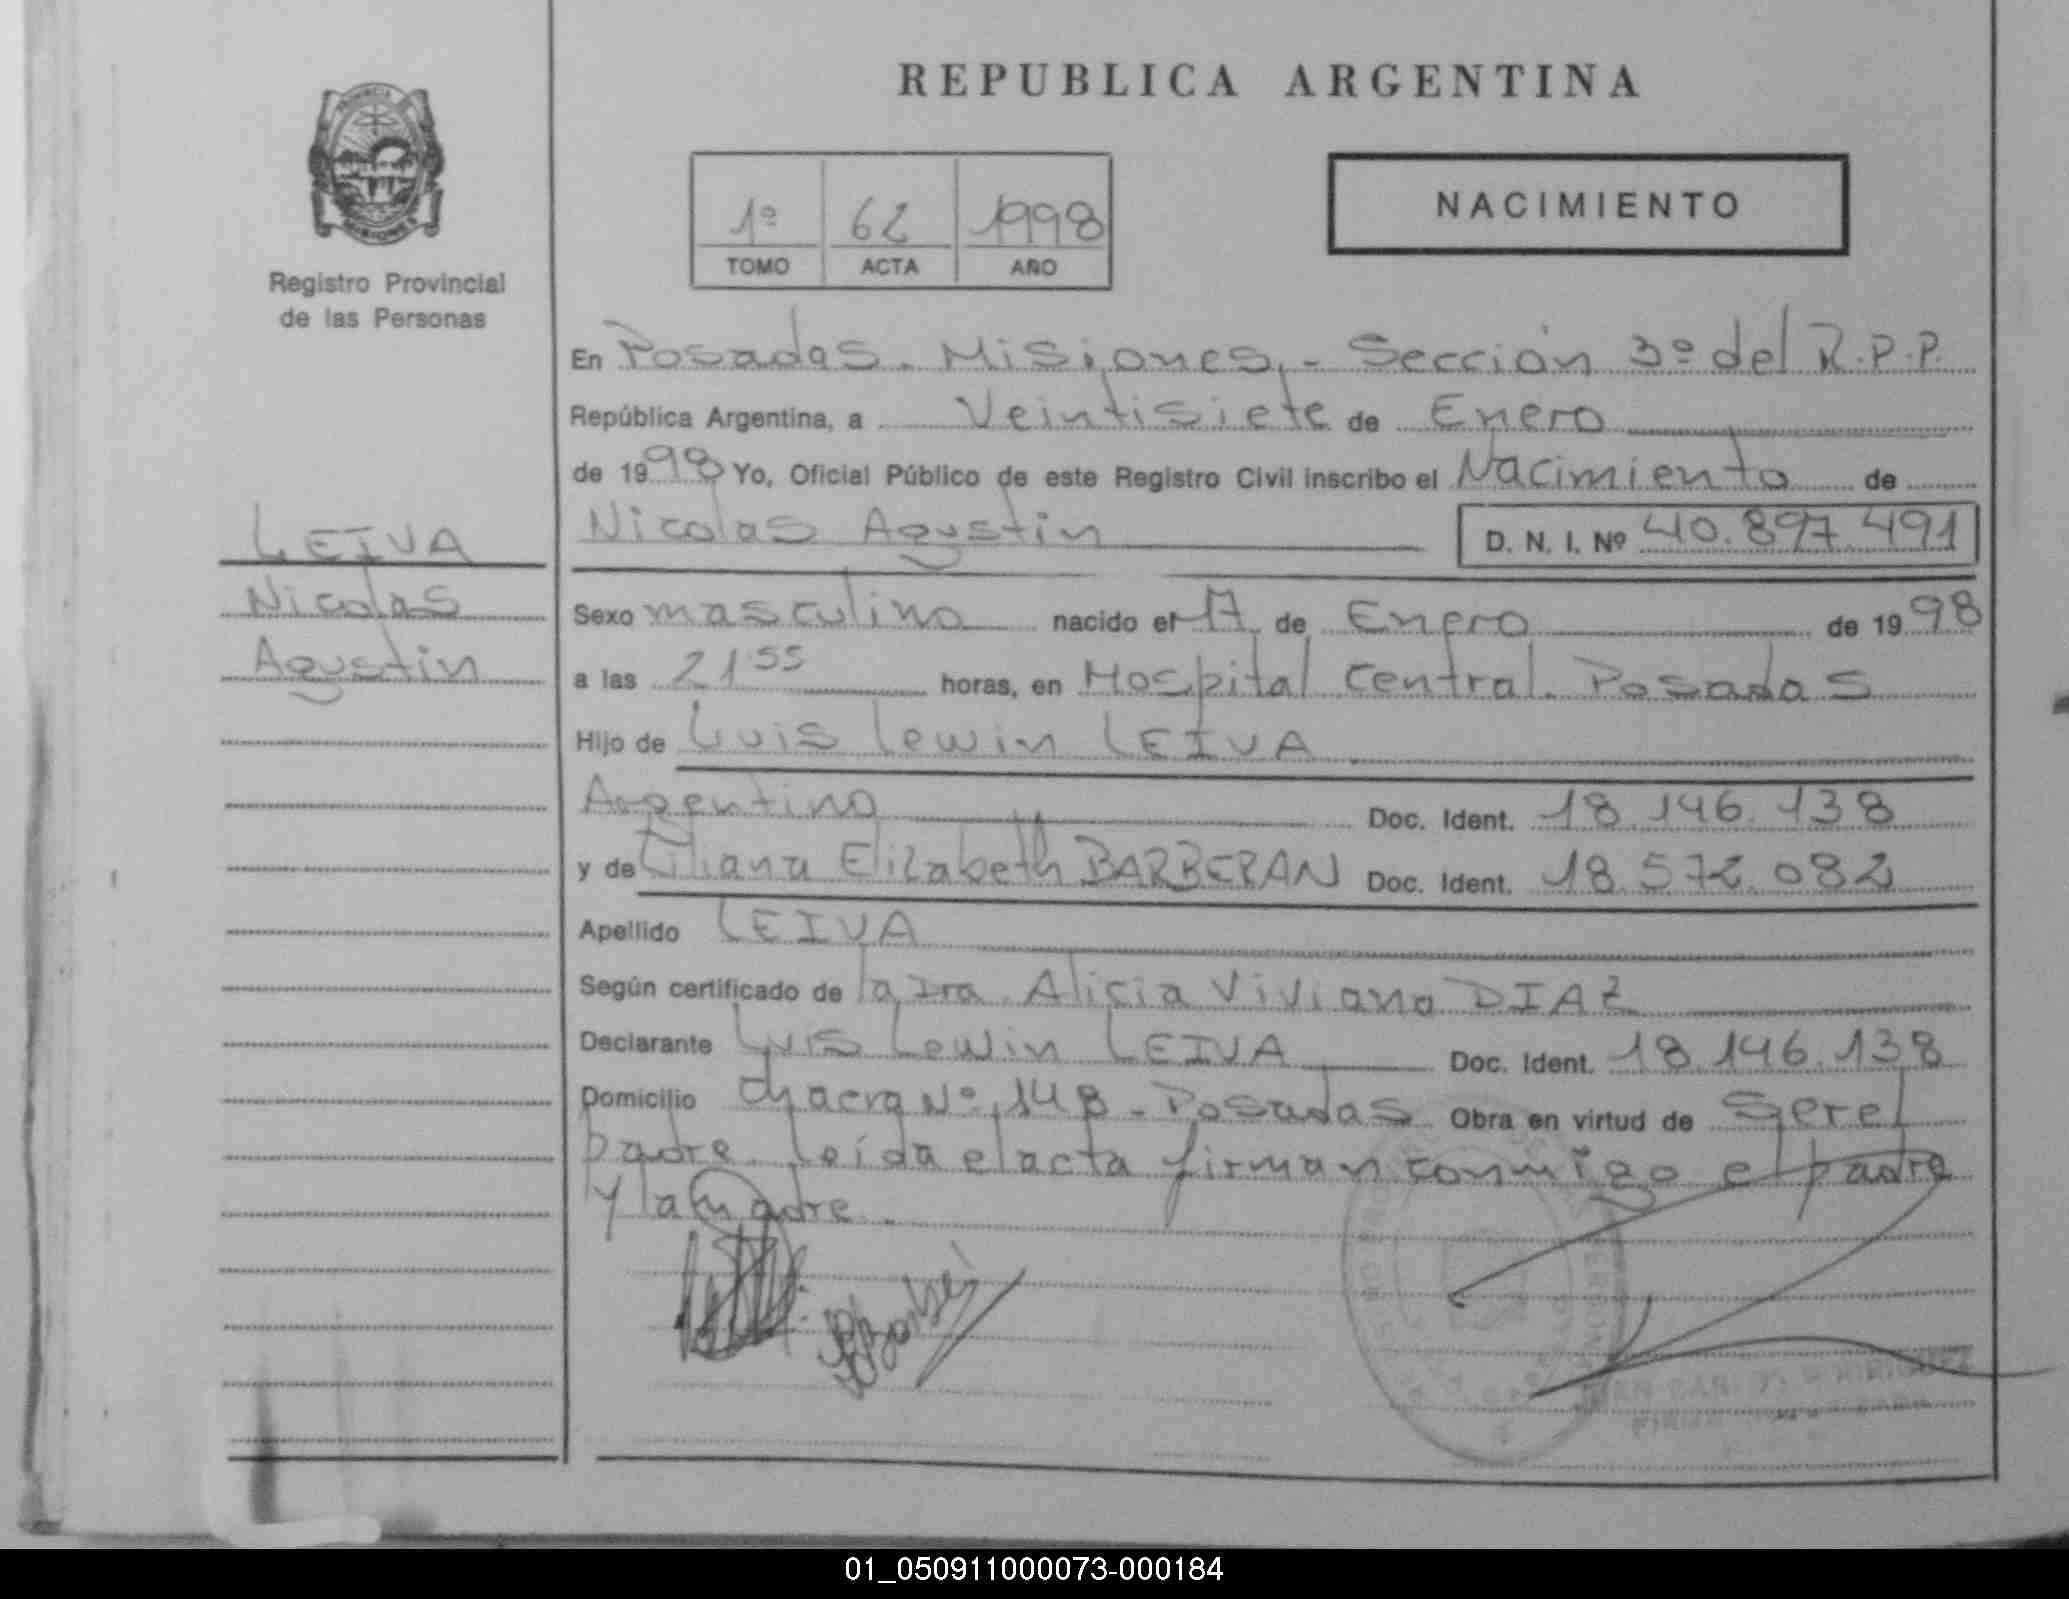 REPUBLICA ARGENTINA
PROVINCIA
MISIONES
Registro Provincial
de las Personas
1º 62 1998
TOMO ACTA AÑO
NACIMIENTO
En Posadas. Misiones.- Sección 3º del R.P.P.
República Argentina, a Veintisiete de Enero
de 1998 Yo, Oficial Público de este Registro Civil inscribo el Nacimiento de
Nicolas Agustin D. N. I. Nº 40.897.491
LEIVA
Nicolas
Agustin
Sexo masculino nacido el 17 de Enero de 1998
a las 21:55 horas, en Hospital Central. Posadas
Hijo de Luis Lewin LEIVA
Argentino Doc. Ident. 18.146.138
y de Liliana Elizabeth BARBERAN Doc. Ident. 18.572.082
Apellido LEIVA
Según certificado de la Dra. Alicia Viviana DIAZ
Declarante Luis Lewin LEIVA Doc. Ident. 18.146.138
Domicilio Chacra Nº 148 - Posadas Obra en virtud de ser el
padre. Leída el acta firman conmigo el padre
y la madre.
01_050911000073-000184